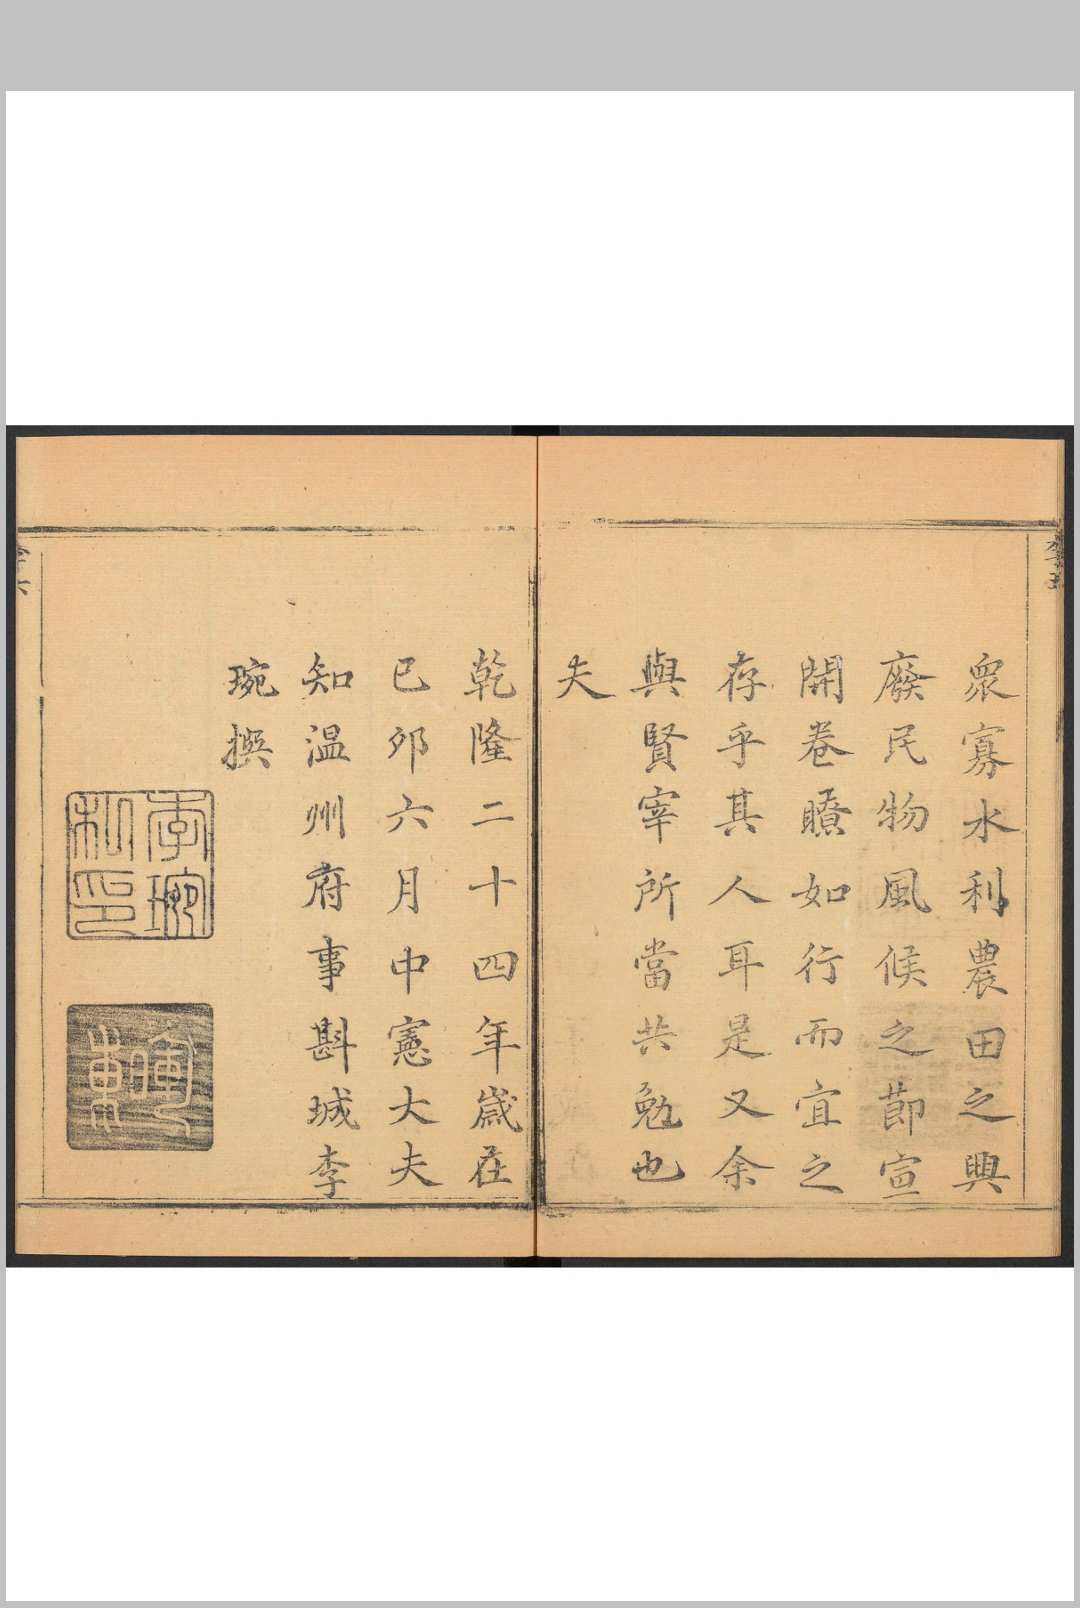 衆寡水利農田之興
廢民物風候之節宣
開卷瞭如行而宜之
存乎其人耳是又余
與賢宰所當共勉也
夫
乾隆二十四年歲在
己卯六月中憲大夫
知温州府事斟城李
琬撰
李琬
私印